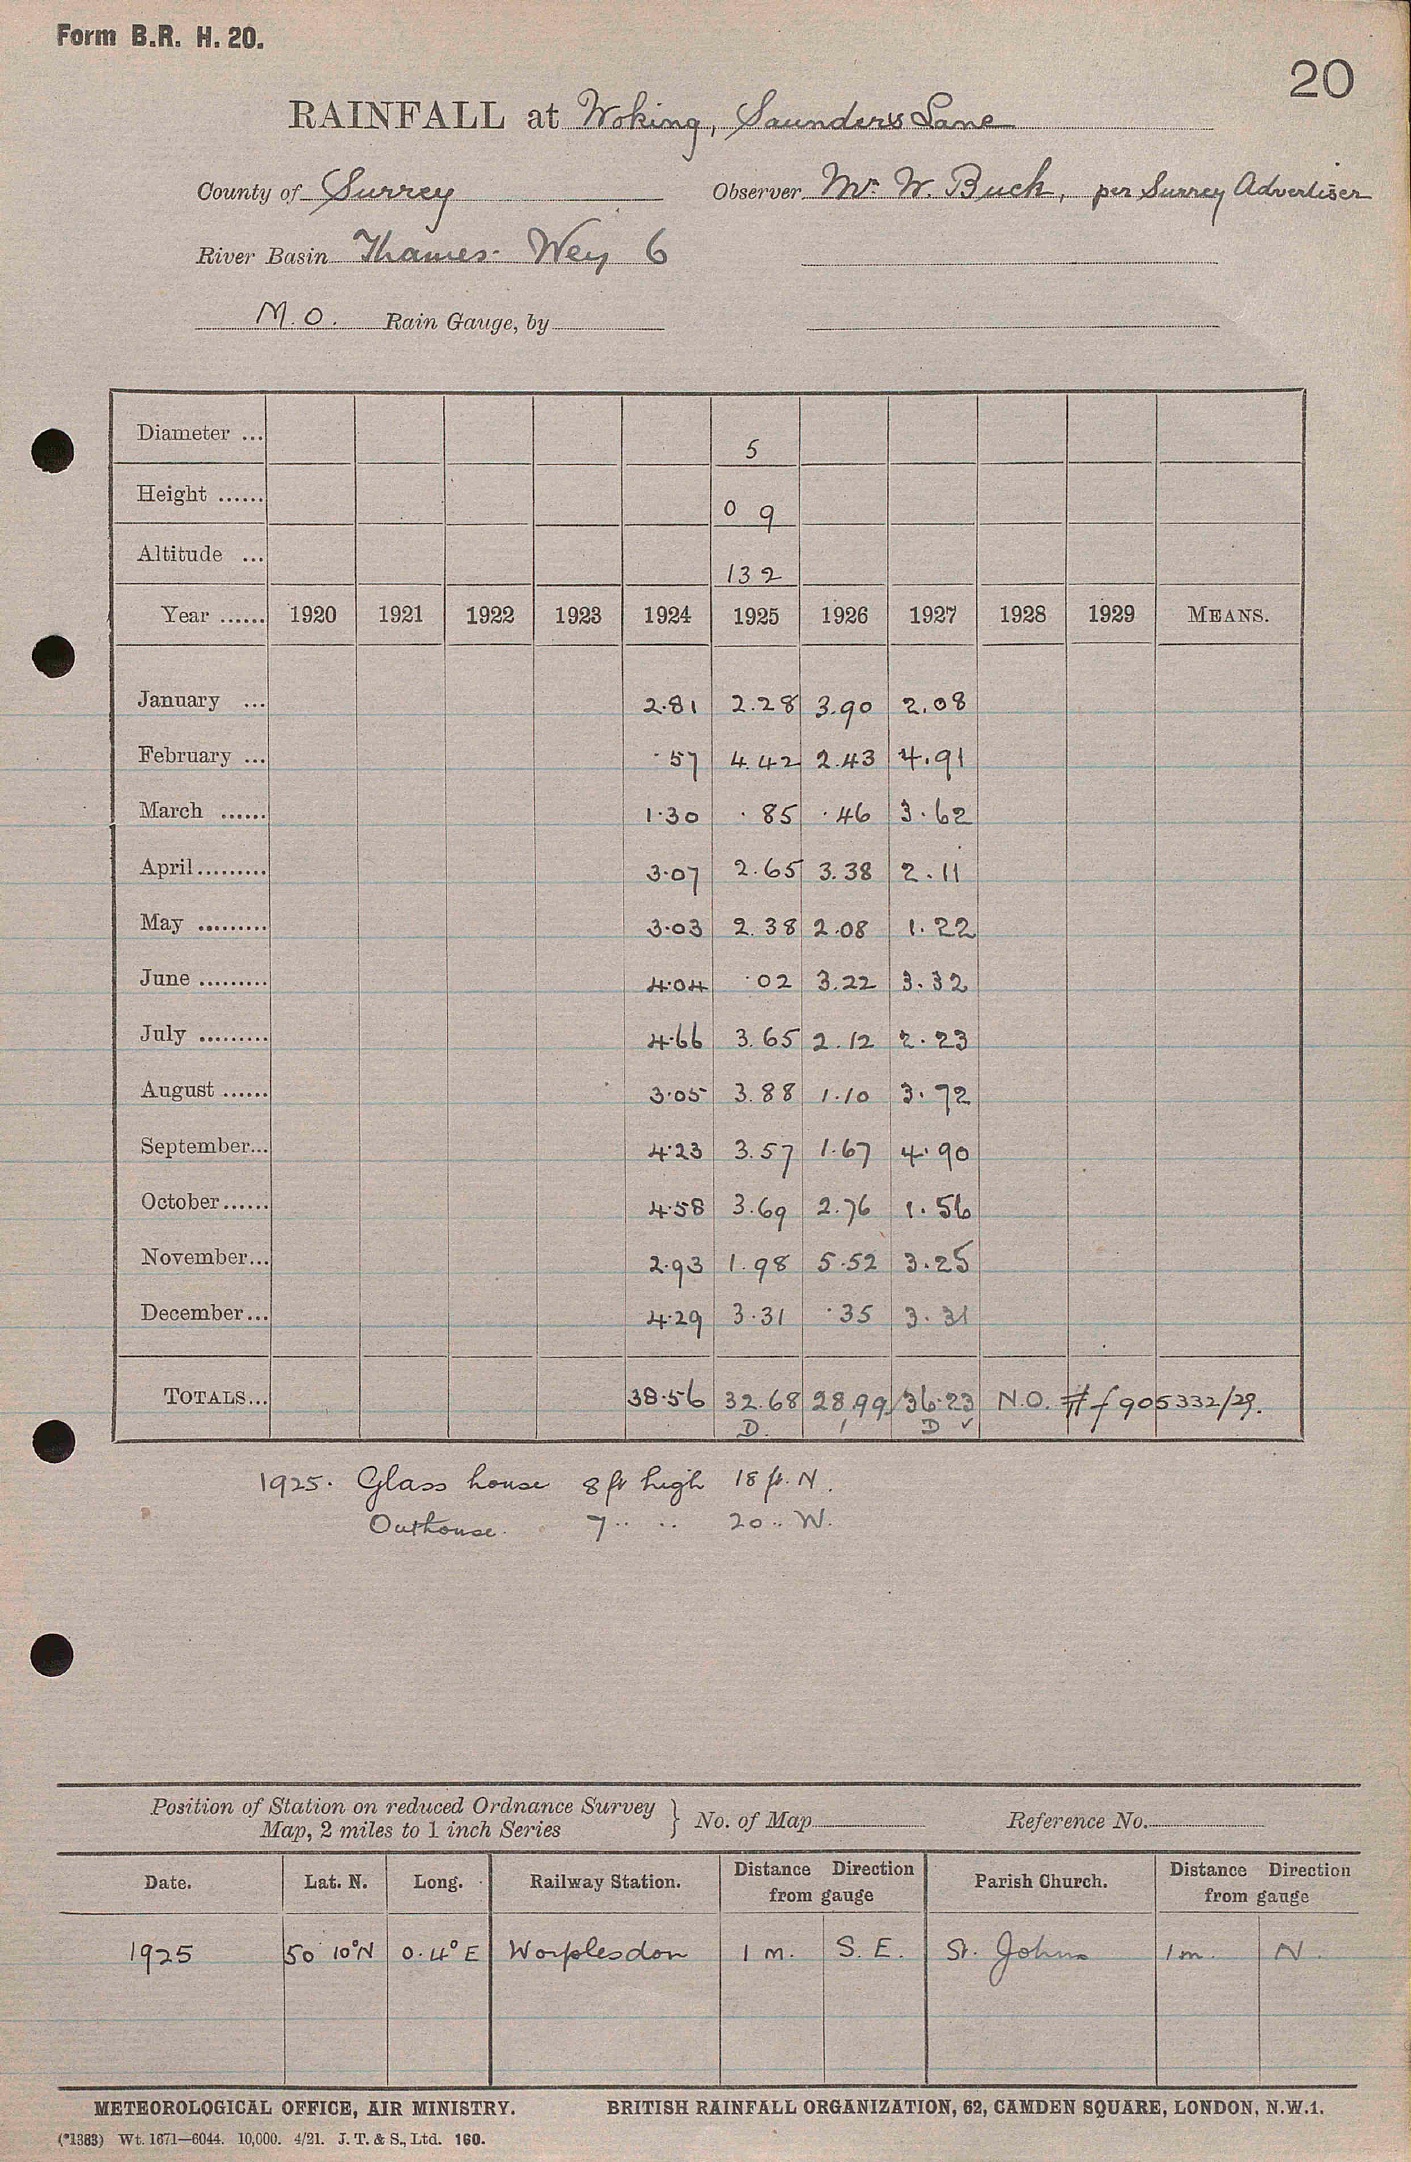 Form B.R. H. 20.
20
RAINFALL at Woking, Saunders Lane
County of Surrey Observer Mr. W. Buck, per Surrey Advertiser
River Basin Thames - Wey 6
M.O. Rain Gauge, by
Diameter ... 5
Height ...... 0 9
Altitude ... 132
Year ...... 1920 1921 1922 1923 1924 1925 1926 1927 1928 1929 MEANS.
January ... 2.81 2.28 3.90 2.08
February ... .57 4.42 2.43 4.91
March ...... 1.30 .85 .46 3.62
April ......... 3.07 2.65 3.38 2.11
May ......... 3.03 2.38 2.08 1.22
June ......... 4.04 .02 3.22 3.32
July ......... 4.66 3.65 2.12 2.23
August ...... 3.05 3.88 1.10 3.72
September... 4.23 3.57 1.67 4.90
October...... 4.58 3.69 2.76 1.56
November... 2.93 1.98 5.52 3.25
December... 4.29 3.31 .35 3.31
TOTALS... 38.56 32.68 28.99 36.23 N.O. # f 905332/29.
D. D ✓
1925. Glass house 8 ft high 18 ft. N.
Outhouse. 7 .. .. 20 .. W.
Position of Station on reduced Ordnance Survey
Map, 2 miles to 1 inch Series } No. of Map Reference No.
Date. Lat. N. Long. Railway Station. Distance Direction from gauge Parish Church. Distance Direction from gauge
1925 50 10°N 0.4° E Worplesdon 1 m. S.E. St. Johns 1 m. N.
METEOROLOGICAL OFFICE, AIR MINISTRY. BRITISH RAINFALL ORGANIZATION, 62, CAMDEN SQUARE, LONDON, N.W.1.
(*1383) Wt. 1671—6044. 10,000. 4/21. J. T. & S., Ltd. 160.